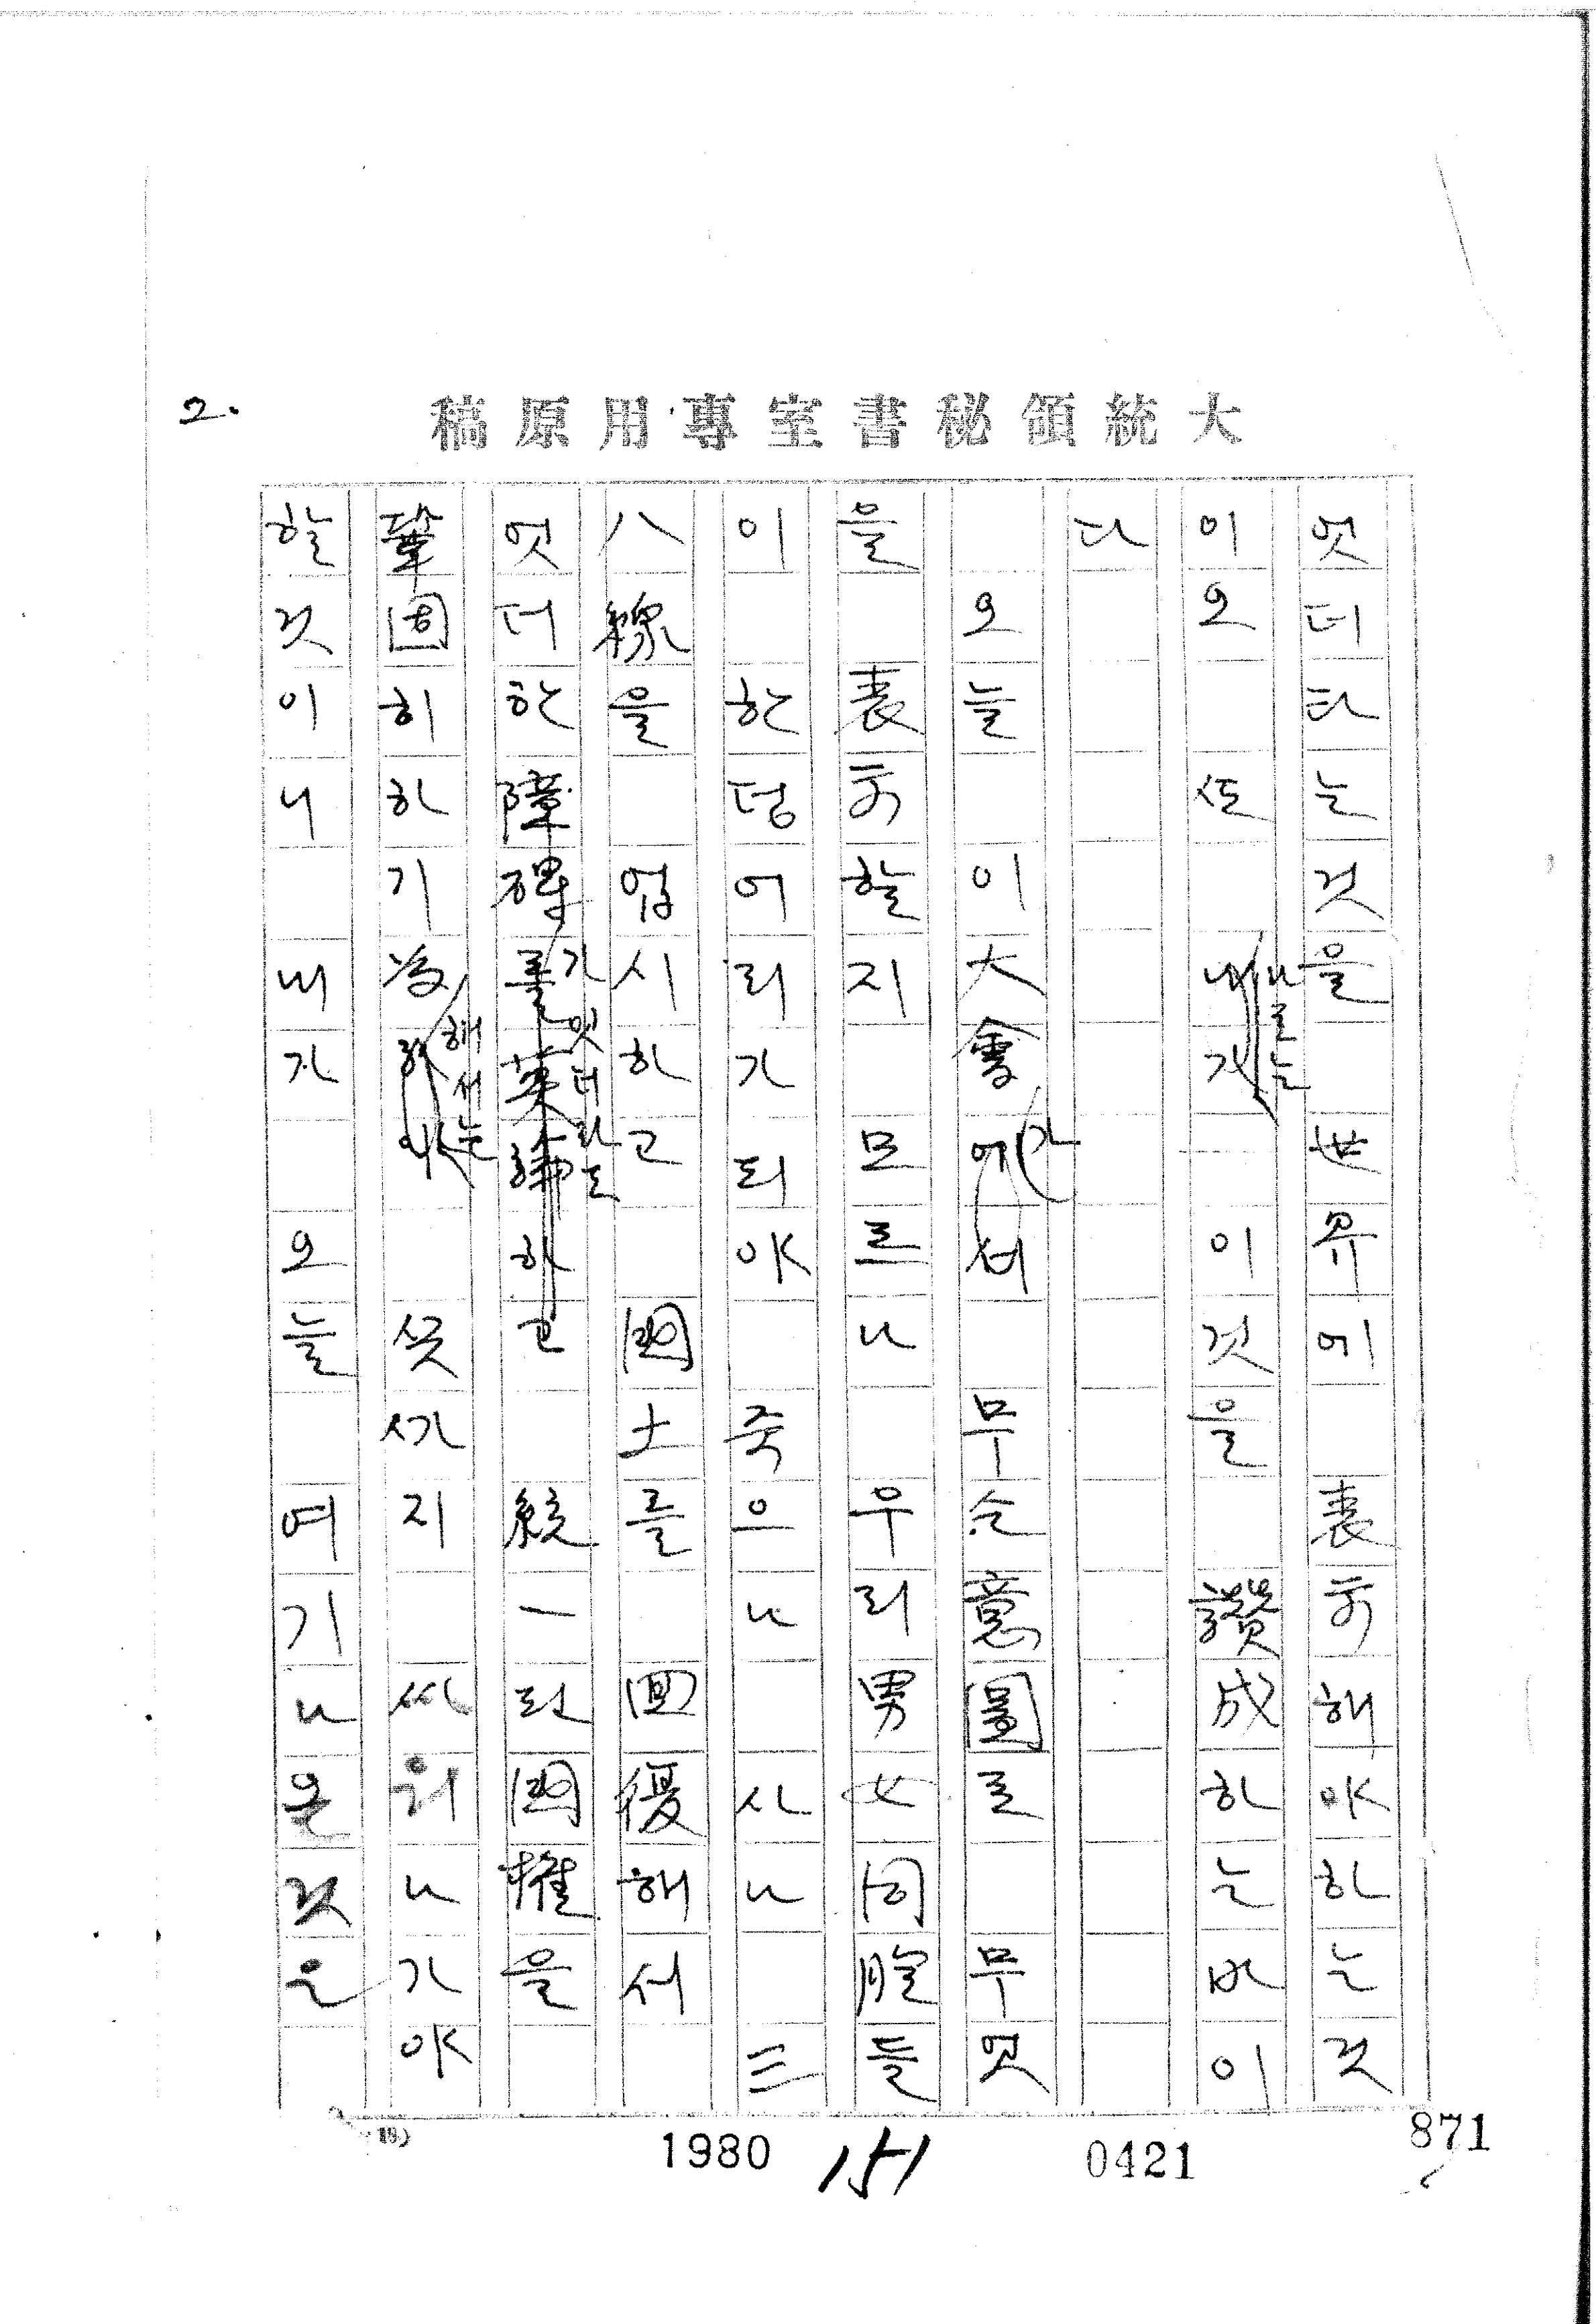 大統領秘書室專用原稿
2.
엇더타는것을 世界에 表示해야하는것
이오 ᄯᅩ 내가 나로는 이것을 讚成하는바이
다
오늘 이大會에서 가 무슨意圖로 무엇
을 表示할지 모르나 우리男女同胞들
이 한덩어리가되야 죽으나 사나 三
八線을 업시하고 國土를 回復해서
엇더한障碍를莫論하고 가잇더라도 統一된國權을
鞏固히하기爲하야 해서는 ᄭᅳᆺᄭᅡ지 싸워나가야
할것이니 내가 오늘 여기나온것은
1980
151
0421
871